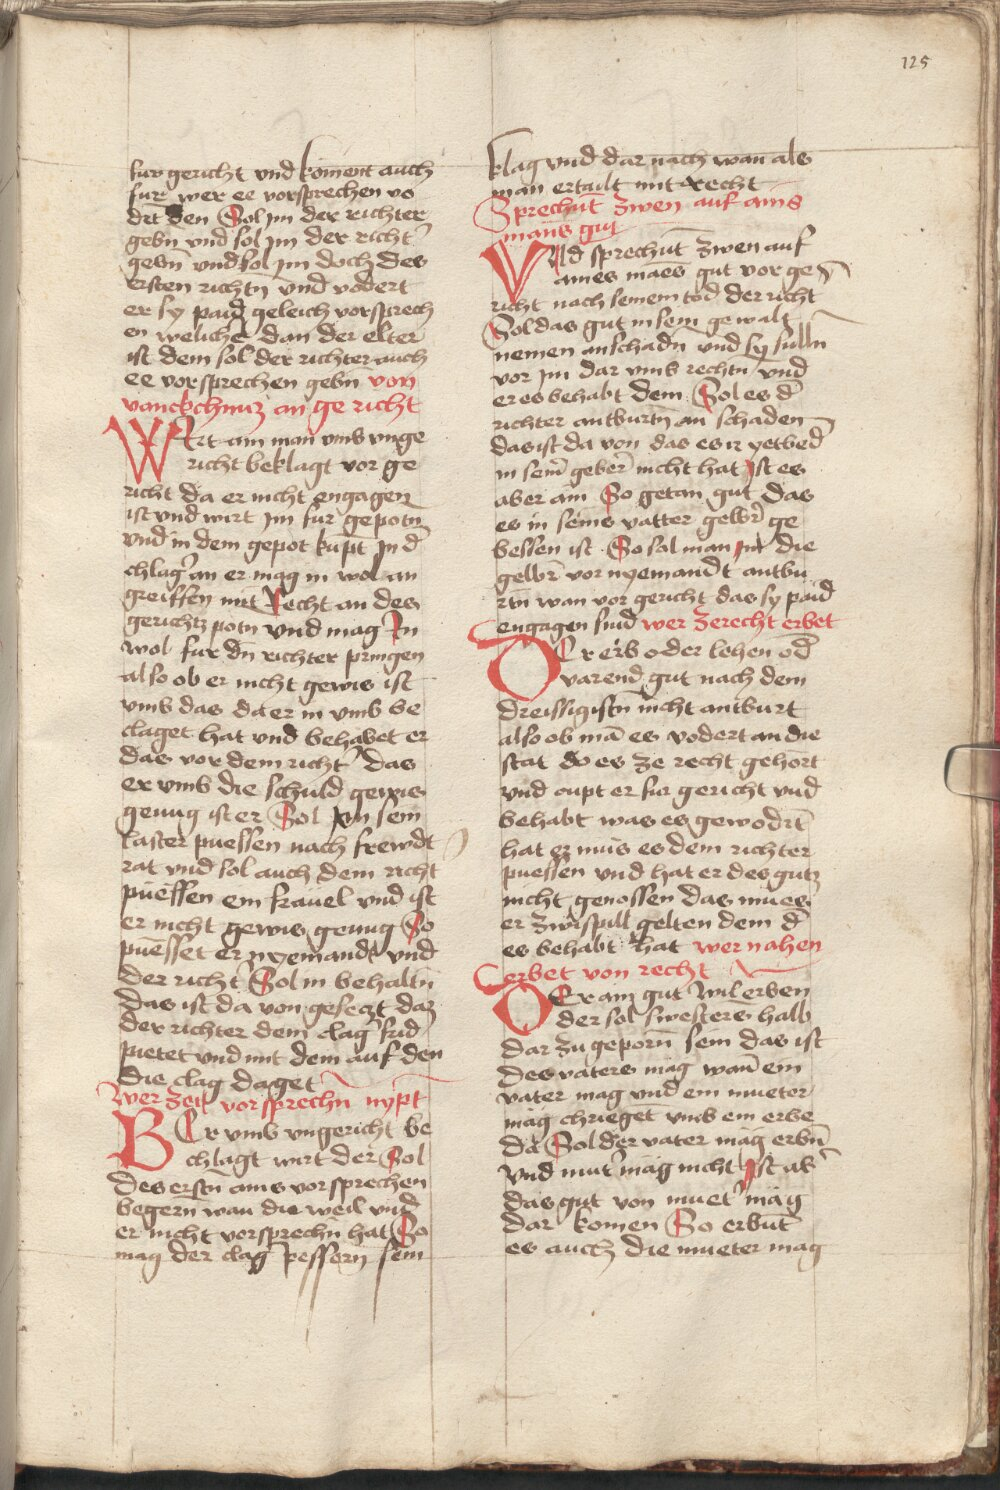 125
fur gericht vnd koment auch
fur wer ee vorsprechen vo
drt den Sol im der richter
gebn vnd sol im der richt
gebn vnd sol im doch des
ersten richtn vnd vodert
er sy paid geleich vorsprech
en welicher dan der elter
ist dem sol der richter auch
ee vorsprechen gebn von
vanckchnuz an ge richt
WErt ain man vmb vnge
richt beklagt vor ge
richt da er nicht engagen
ist vnd wirt im fur gepotn
vnd in dem gepot kupt In d̄
chlag̾ an er mag in wol an
greiffen mit Recht an des
gerichtz potn vnd mag In
wol fur dn richter pringen
also ob er nicht gewis ist
vmb das da er in vmb be
claget hat vnd behabet er
das vor dem richt̾ das
er vmb die schuld gewis
genug ist er Sol Im sein
laster puessen nach frewdt
rat vnd sol auch dem richt
puessen ein frauel vnd ist
er nicht gewis genug So
puesset er nyemandt vnd
der richt̾ Sol in behaltn
das ist da von geseczt daz
der richter dem clag̾ frid
pietet vnd mit dem auf den
die clag daget
Wer zeit vorsprechn nypt
BEr vmb vngericht be
chlagt wirt der Sol
des erstn ains vorsprechen
begern wan die weil vnd
er nicht vorsprechn hat So
mag der clag pessern sein
klag vnd dar nach wan als
man ertailt mit recht
Sprechnt zwen auf ains
mans gut
Vnd sprechnt zwen auf
aines maēs gut vor ge
richt nach seinem tod der richt
Sol das gut in sein gewalt
nemen an schadn vnd sy sulln
vor im dar vmb rechtn vnd
er es behabt dem Sol es d̄
richter antburtn an schaden
das ist da von das es ir yetbed̾
in sein̄ geber̄ nicht hat Ist es
aber ain So getan gut das
es in seins vatter gelbr̄ ge
bessen ist So sol man im die
gelbr̄ vor nyemandt antbu
rtn wan vor gericht das sy paid
engagen sind wer ze recht erbet
DEr erb oder lehen od̄
varend gut nach dem
dreissigistn nicht antburt
also ob mā es vodert an die
stat do es ze recht gehort
vnd cupt er fur gericht vnd
behabt was es gewodrt
hat er mus es dem richter
puessen vnd hat er des gutz
nicht genossen das mues
er zwispill gelten dem d̄
es behabt hat wer nahen
erbet von recht
DEr ain gut wil erben
der sol swesters halb
dar zu geporn sein das ist
des vaters mag wan ein
vater mag vnd ein mueter
mag chrieget vmb ein erbe
da Sol der vater mag erbn
vnd mut̾ mag nicht Ist ab̾
das gut von muet̾ mag
dar komen So erbnt
es auch die mueter mag